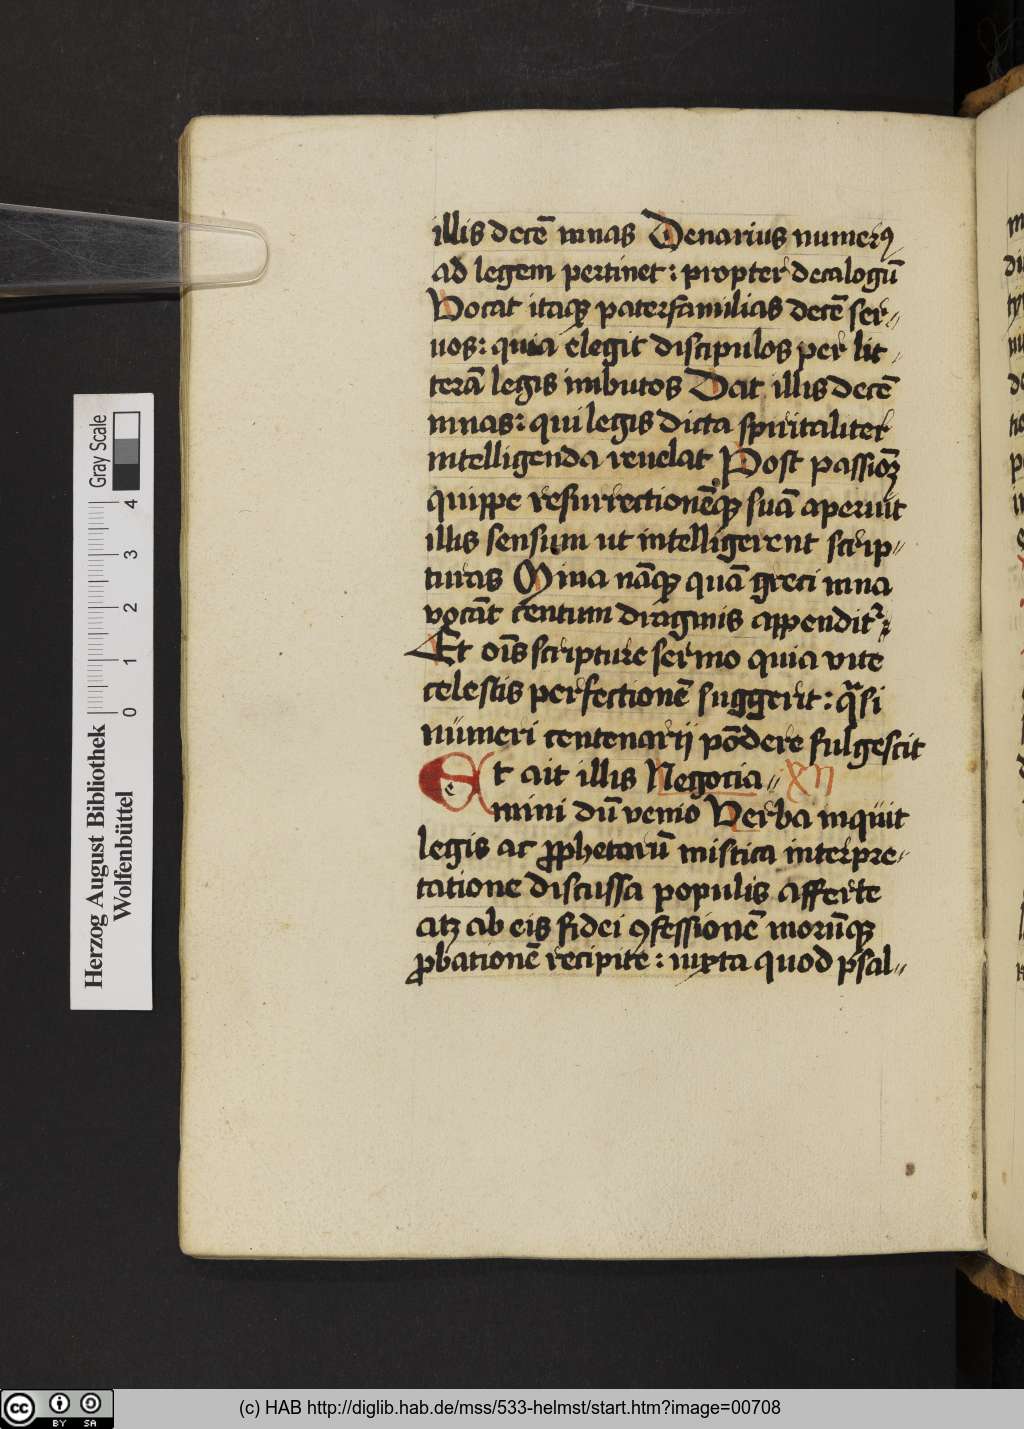 illis decē mnas Denarius numerꝰ
ad legem pertinet : propter decalogū
Vocat itaqꝫ paterfamilias decē ser⸗
uos : quia elegit discipulos per lit⸗
terā legis imbutos Dat illis decē
mnas : qui legis dicta spiritaliter
intelligenda reuelat Post passionē
quippe resurrectionēqꝫ suā aperuit
illis sensum ut intelligerent scrip⸗
turas Mina nāqꝫ quā greci mna
vocāt centum dragmis appendit᷑
Et oīs scripture sermo quia vite
celestis perfectionē suggerit : qͣsi
numeri centenarij pōdere fulgescit
Et ait illis Negocia⸗ XII
mini dū venio Verba inquit
legis ac ꝓphetarū mistica interpre⸗
tatione discussa populis afferte
atꝫ ab eis fidei ꝯfessionē morūqꝫ
ꝓbationē recipite : iuxta quod psal⸗
Herzog August Bibliothek
Wolfenbüttel
Gray Scale
0 1 2 3 4
cc BY SA
(c) HAB http://diglib.hab.de/mss/533-helmst/start.htm?image=00708